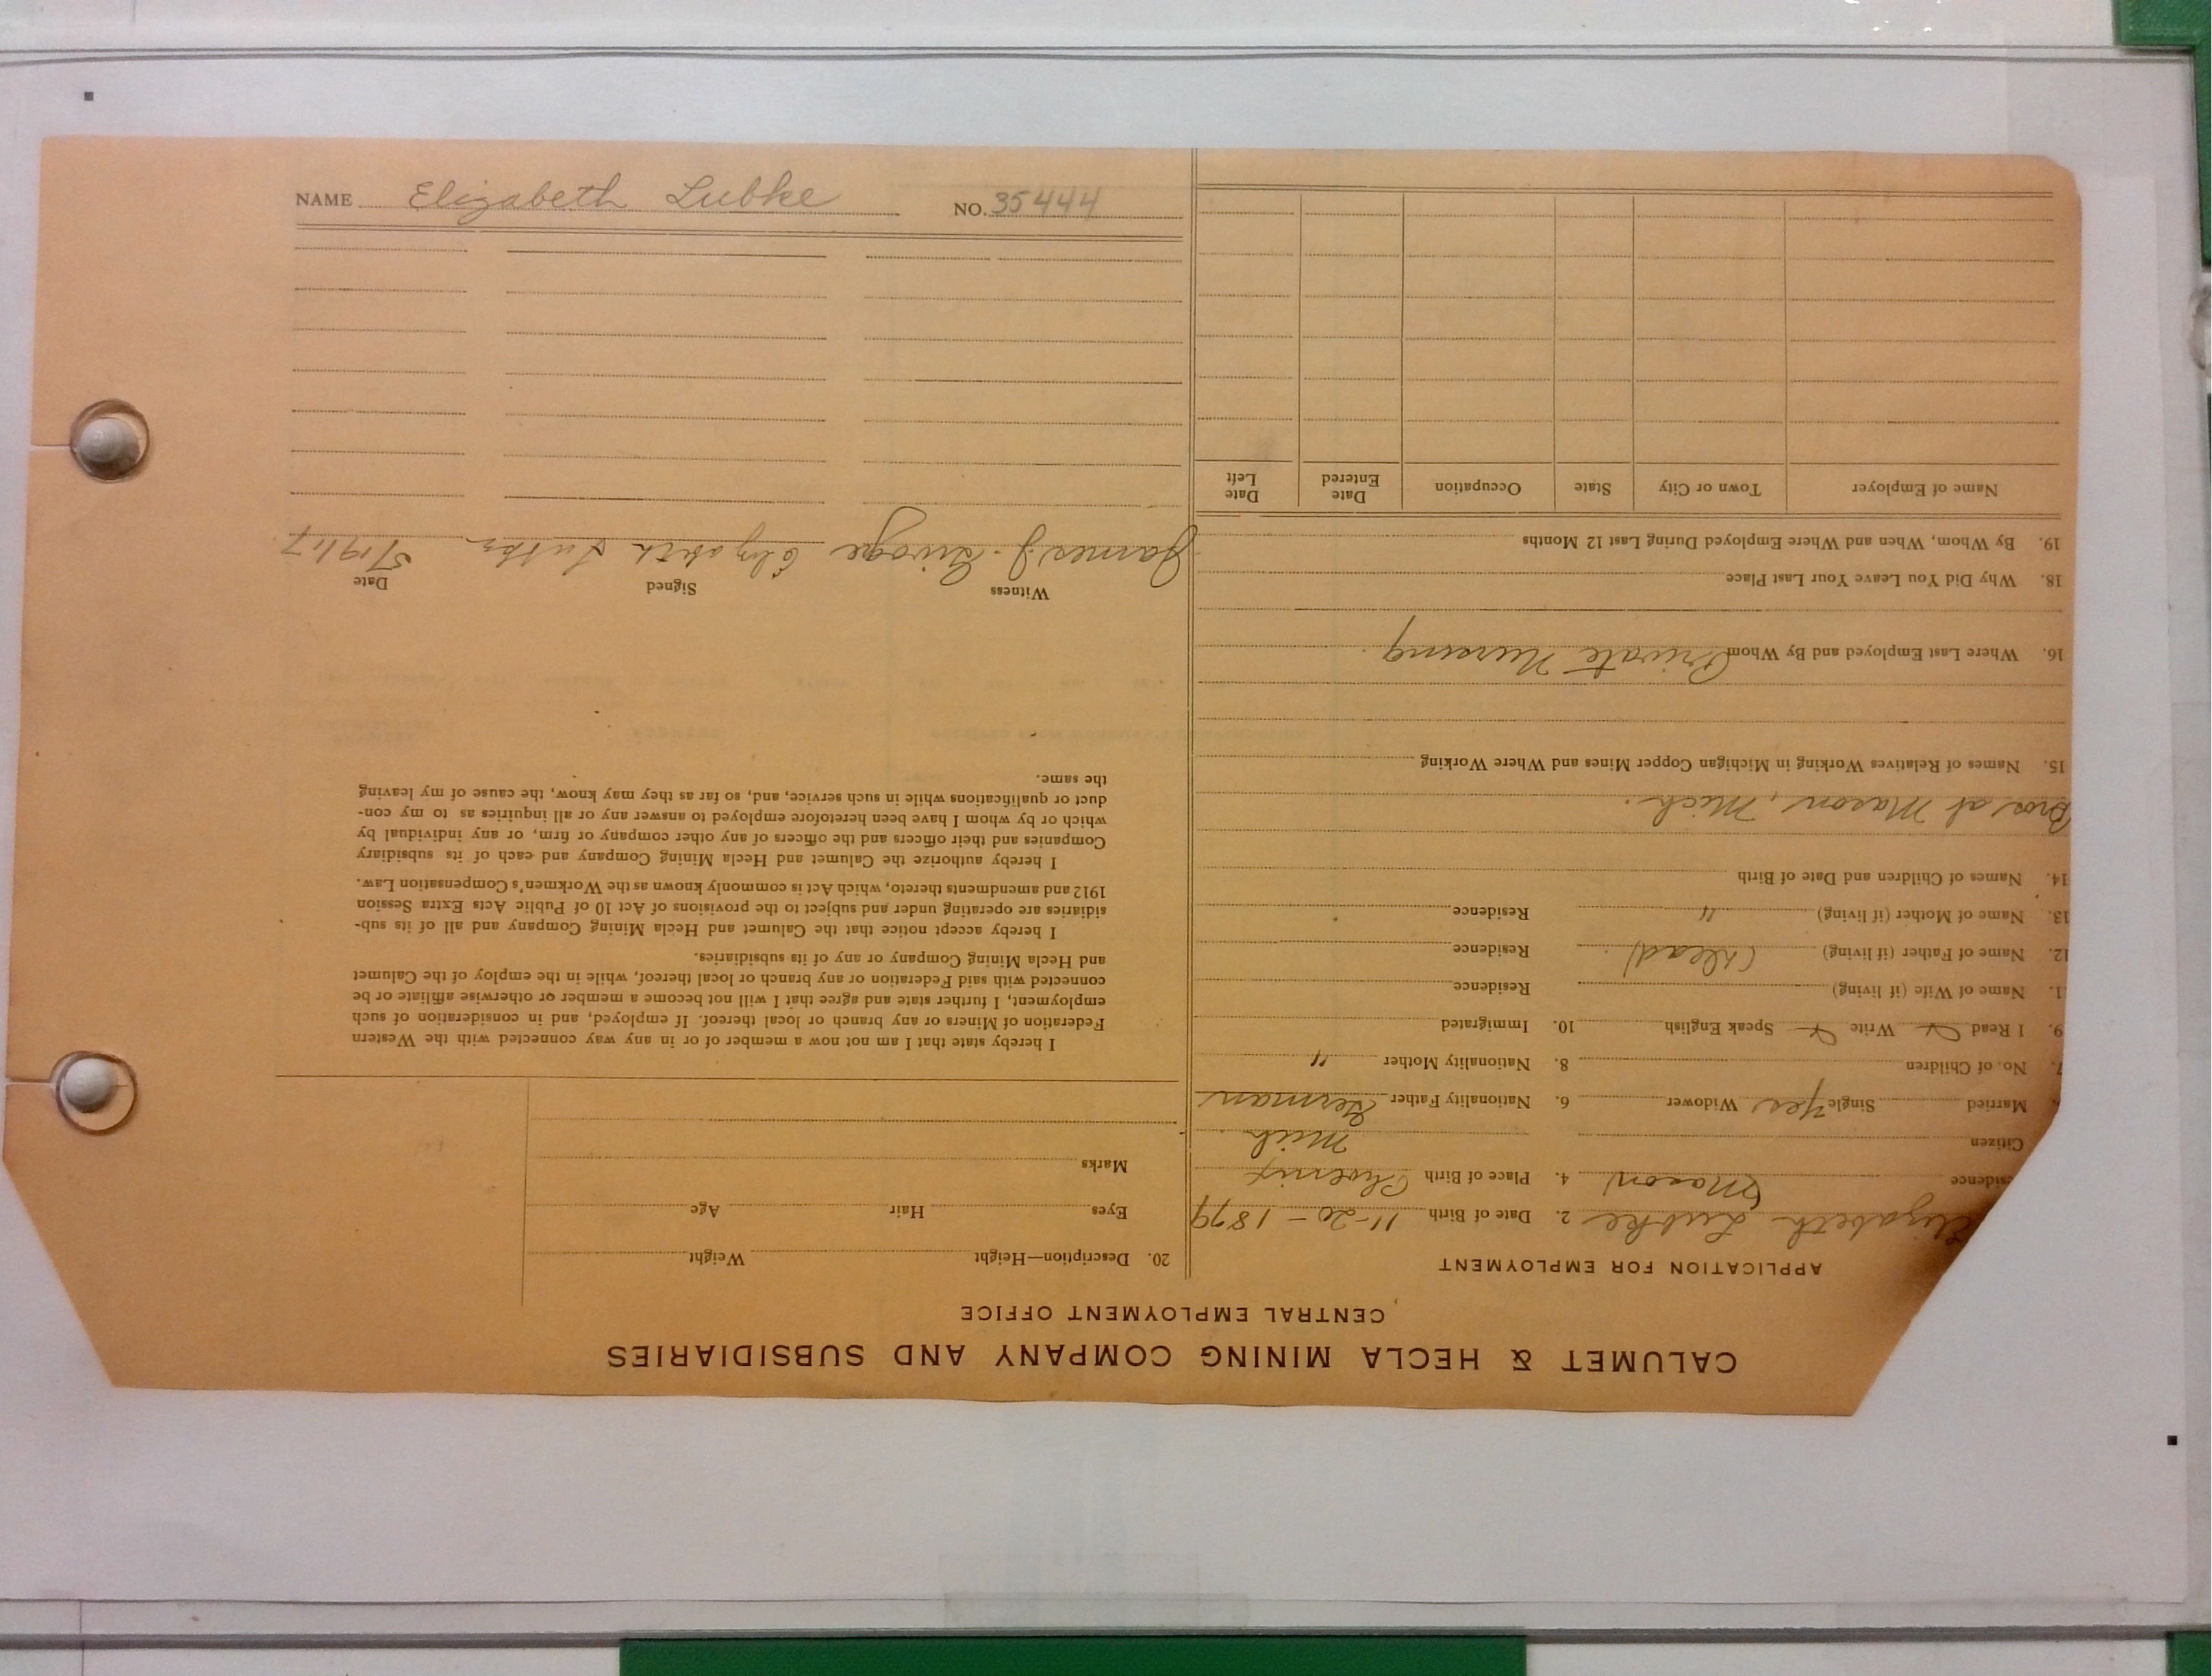 CALUMET & HECLA MINING COMPANY AND SUBSIDIARIES
CENTRAL EMPLOYMENT OFFICE
APPLICATION FOR EMPLOYMENT
Elizabeth Lubke 2. Date of Birth 11-20-1879
Residence Mason 4. Place of Birth Phoenix
Citizen Mich
Married Single Yes Widower 6. Nationality Father German
7. No. of Children 8. Nationality Mother "
9. I Read Write Speak English 10. Immigrated
1. Name of Wife (if living) Residence
12. Name of Father (if living) (Dead) Residence
13. Name of Mother (if living) " Residence
14. Names of Children and Date of Birth
Bros at Mason, Mich.
15. Names of Relatives Working in Michigan Copper Mines and Where Working
16. Where Last Employed and By Whom Private Nursing
18. Why Did You Leave Your Last Place
19. By Whom, When and Where Employed During Last 12 Months
Name of Employer Town or City State Occupation Date Entered Date Left
20. Description—Height Weight
Eyes Hair Age
Marks
I hereby state that I am not now a member of or in any way connected with the Western
Federation of Miners or any branch or local thereof. If employed, and in consideration of such
employment, I further state and agree that I will not become a member or otherwise affiliate or be
connected with said Federation or any branch or local thereof, while in the employ of the Calumet
and Hecla Mining Company or any of its subsidiaries.
I hereby accept notice that the Calumet and Hecla Mining Company and all of its sub-
sidiaries are operating under and subject to the provisions of Act 10 of Public Acts Extra Session
1912 and amendments thereto, which Act is commonly known as the Workmen's Compensation Law.
I hereby authorize the Calumet and Hecla Mining Company and each of its subsidiary
Companies and their officers and the officers of any other company or firm, or any individual by
which or by whom I have been heretofore employed to answer any or all inquiries as to my con-
duct or qualifications while in such service, and, so far as they may know, the cause of my leaving
the same.
Witness Signed Date
James J. Elizabeth Lubke 5/19/17
NAME Elizabeth Lubke NO. 35444